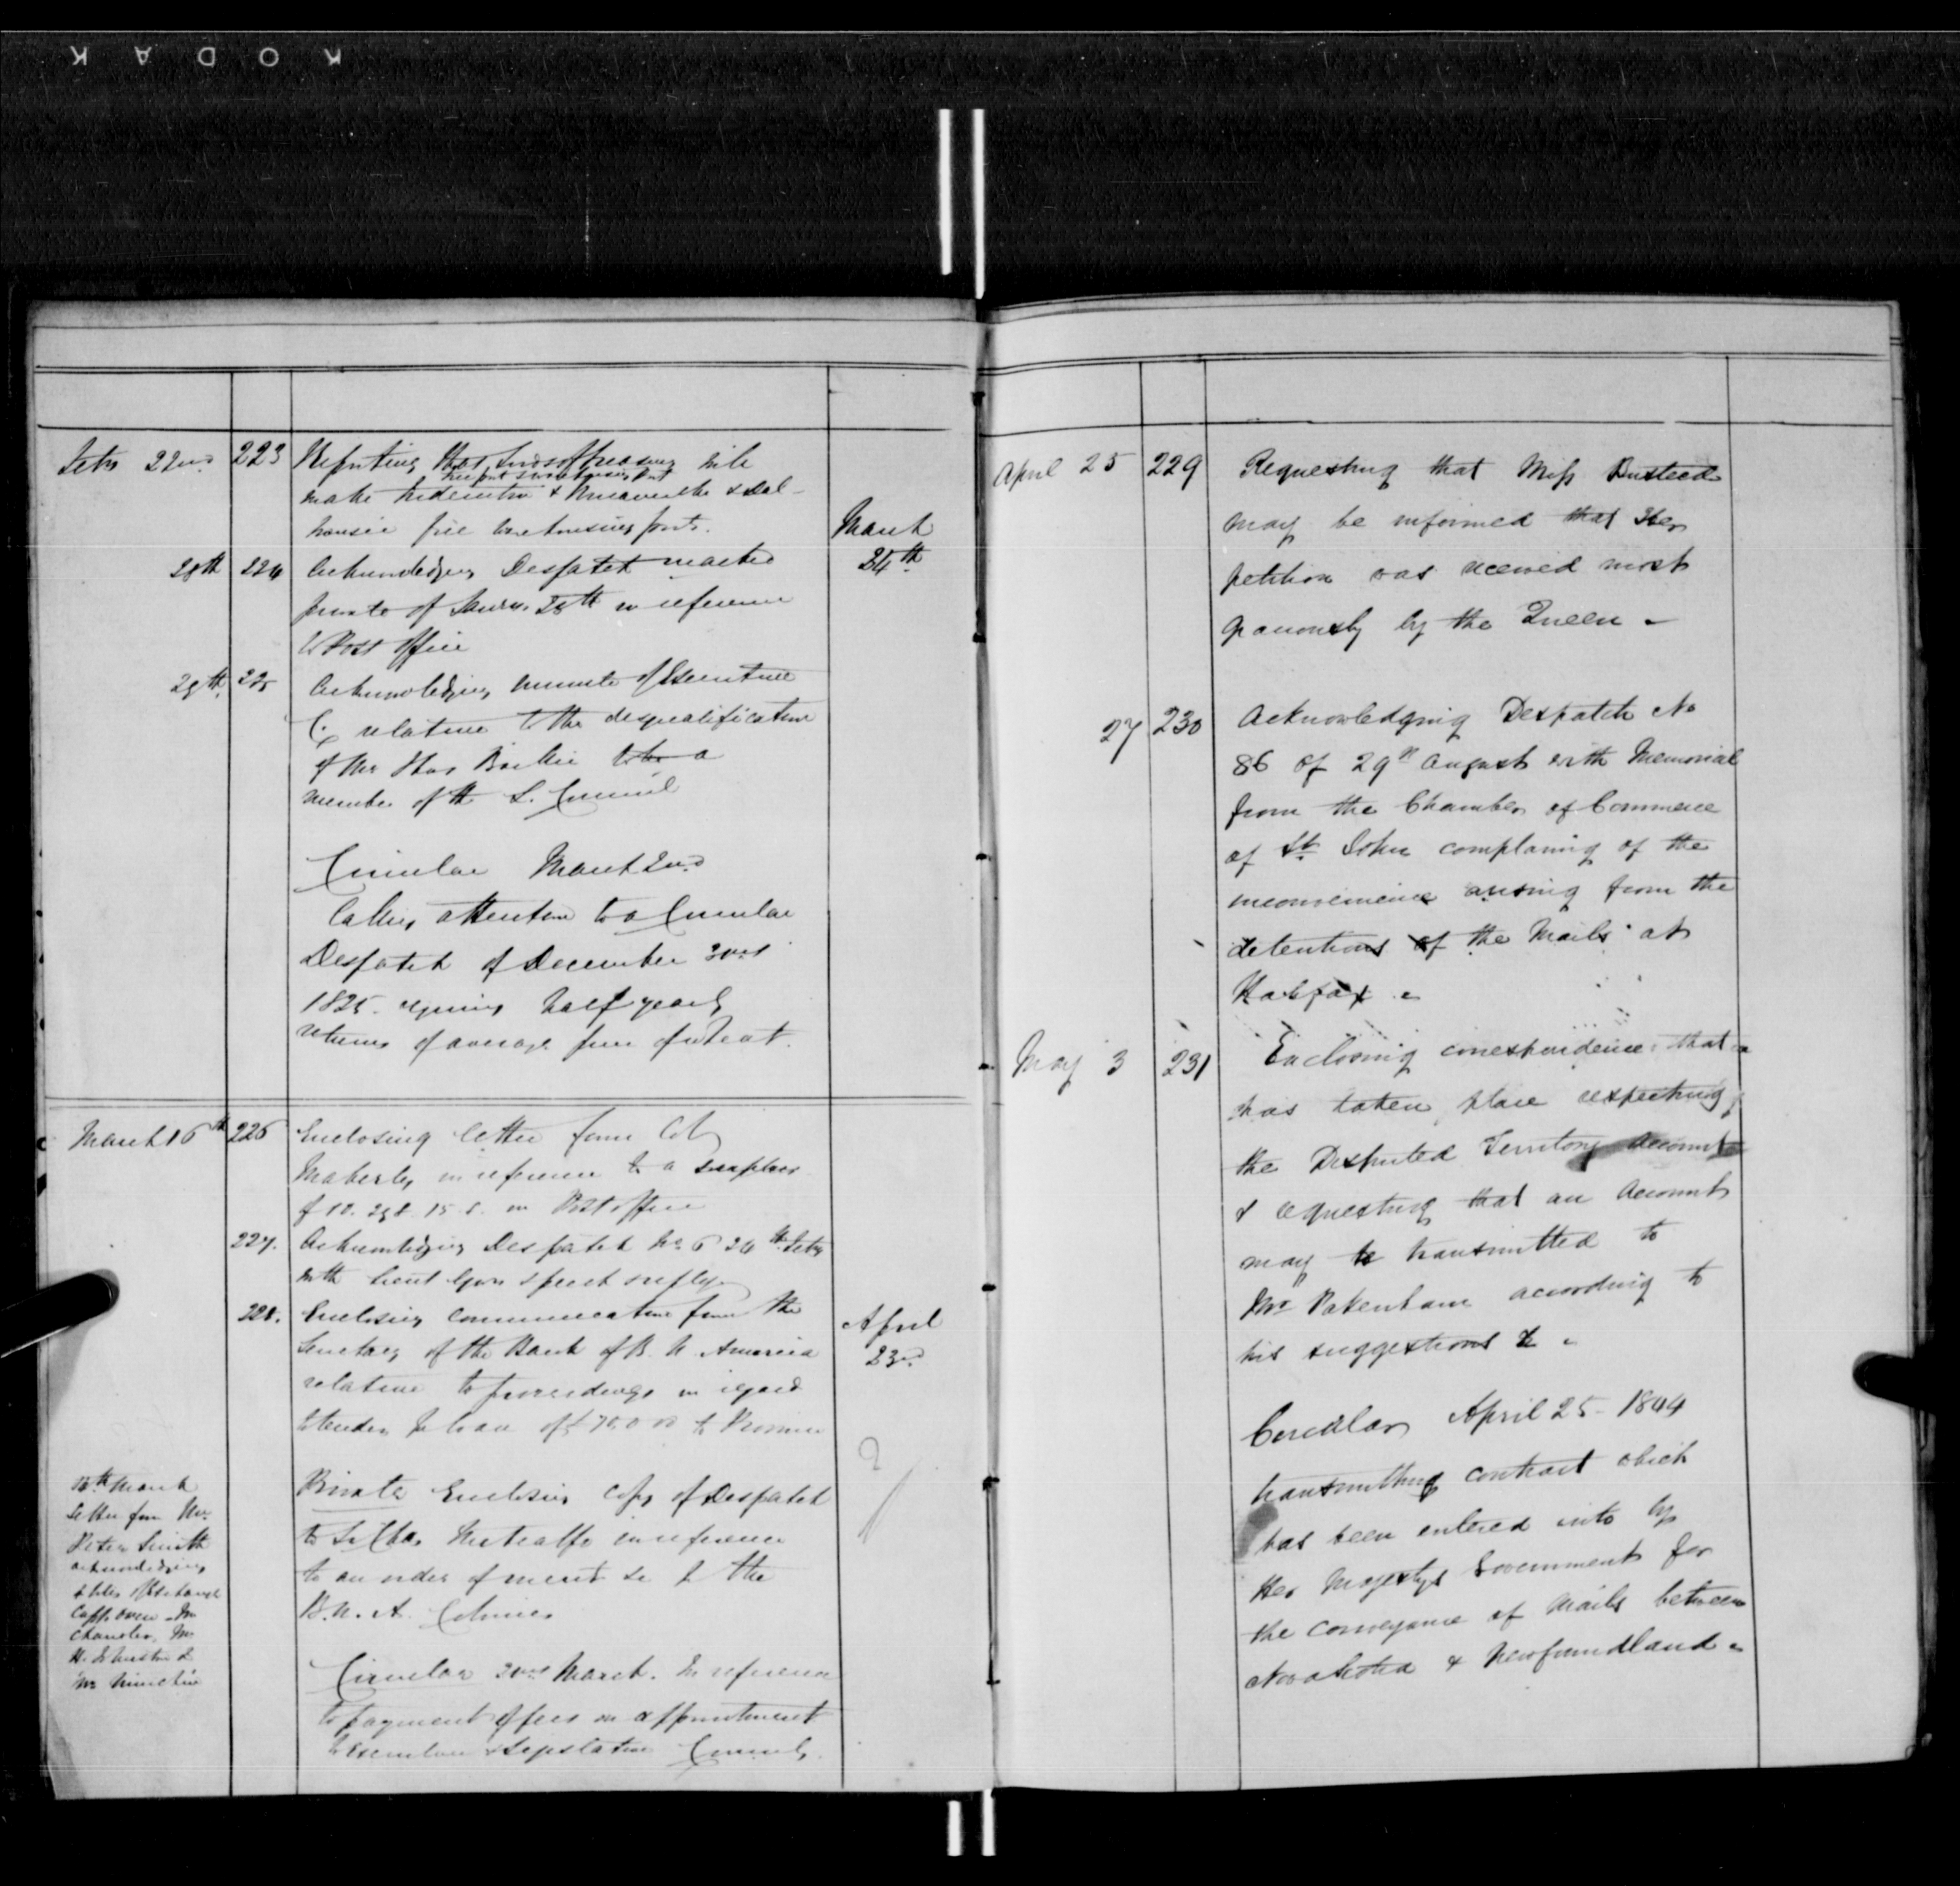 KODAK
Feby 22nd 223 Reporting that Lords of Treasury will
make & Miramichi & Dal-
housie free warehousing ports. March
28th 224 Acknowledging Despatch marked 24th
private of Jany. 28th in reference
to Post Office
29th 225 Acknowledging minute of Executive
C relative to the disqualification
of Mr Thos Baillie to be a
member of the L. Council
Circular March 2nd
Calling attention to a Circular
Despatch of December 3
1825 requiring half yearly
returns of average price of wheat.
March 16th 226 Enclosing letter from Col
Maberly in reference to a surplus
of in Post office
227. Acknowledging Despatch No 6 24th Feby
with Lieut Govrs speech & reply
228. Enclosing communication from the April
Secretary of the Bank of B. N. America 23rd
relative to proceedings in regard
to tender for loan of £ to Province
Private Enclosing copy of Despatch
to Sir Chas Metcalfe in reference
to an order of merit &c for the
B. N. A. Colonies
Circular March. In reference
to payment of fees on appointment
to Executive & Legislative Council
16th March
Letter from Mr
Peter Smith
acknowledging
Capt. Owen - Mr
Chandler, Mr
H. Johnston &
Mr
April 25 229 Requesting that Miss Busteed
may be informed that Her
petition was received most
graciously by the Queen -
27 230 Acknowledging Despatch No
86 of 29th August with Memorial
from the Chamber of Commerce
of St. John complaing of the
inconvenience arising from the
detentions of the Mails at
Halifax -
May 3 231 Enclosing correspondence that
has taken place respecting
the Disputed Territory Account
& requesting that an Account
may be transmitted to
Mr Pakenham according to
his suggestions &c -
Circular April 25 - 1844
transmitting contract which
has been entered into by
Her Majestys Government for
the conveyance of Mails between
Nova Scotia & Newfoundland -